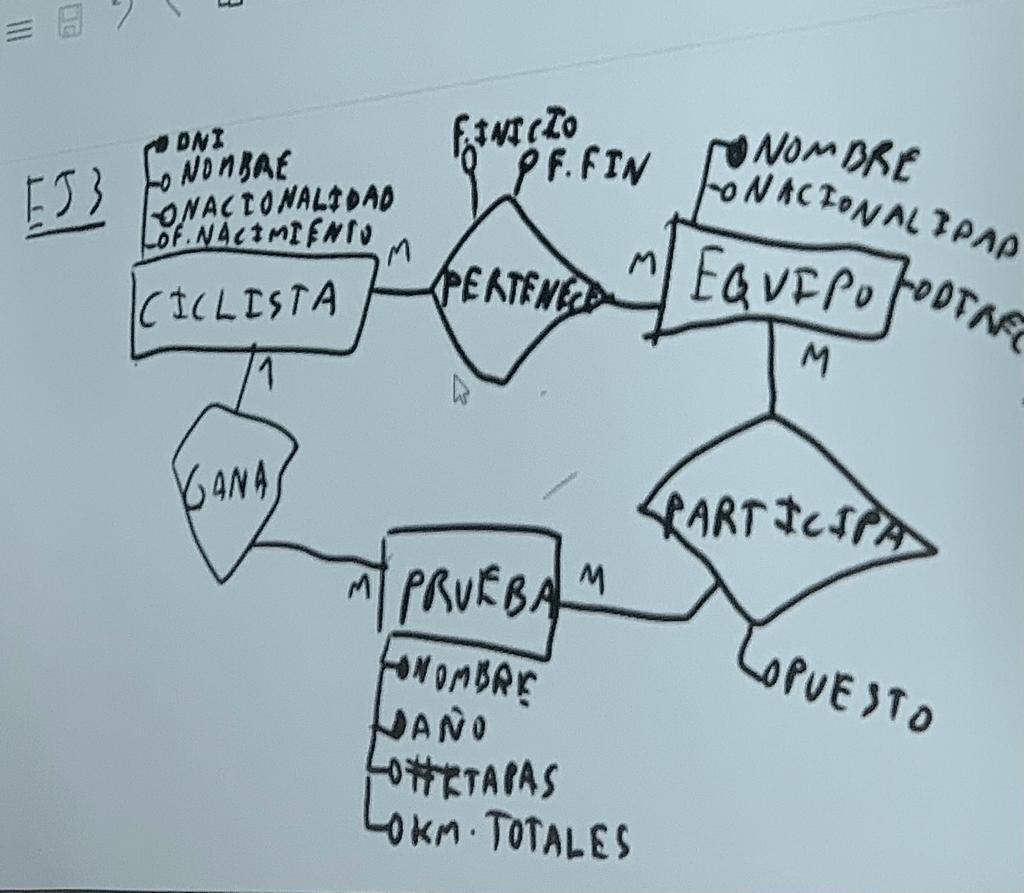 EJ3
DNI
NOMBRE
NACIONALIDAD
F. NACIMIENTO
CICLISTA
M
F. INICIO
F. FIN
PERTENECE
M
NOMBRE
NACIONALIDAD
EQUIPO
1
M
GANA
PARTICIPA
M
PRUEBA
M
PUESTO
NOMBRE
AÑO
#ETAPAS
KM. TOTALES